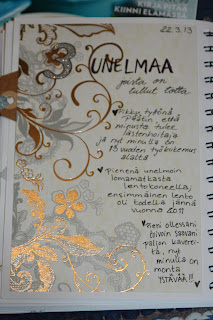 KIRJA PITÄÄ
KIINNI ELÄMÄSTÄ
22.3.13
UNELMAA
joista on
tullut totta
♥ Pikku tyttönä
päätin, että
minusta tulee
lastenhoitaja
ja nyt minulla on
13 vuoden työkokemus
alalta
♥ Pienenä unelmoin
lomamatkasta
lentokoneella,
ensimmäinen lento
oli todella jännä
vuonna 2011
♥ Pieni ollessani
toivoin saavani
paljon kaverei-
ta, nyt
minulla on
monta
YSTÄVÄÄ!!
♥